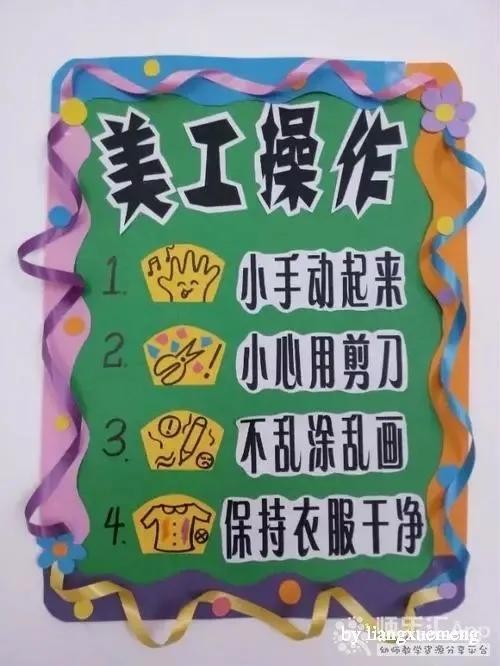 美工操作
1. 小手动起来
2. 小心用剪刀
3. 不乱涂乱画
4. 保持衣服干净
师乐汇App
by liangxuemeng
幼师教学资源分享平台